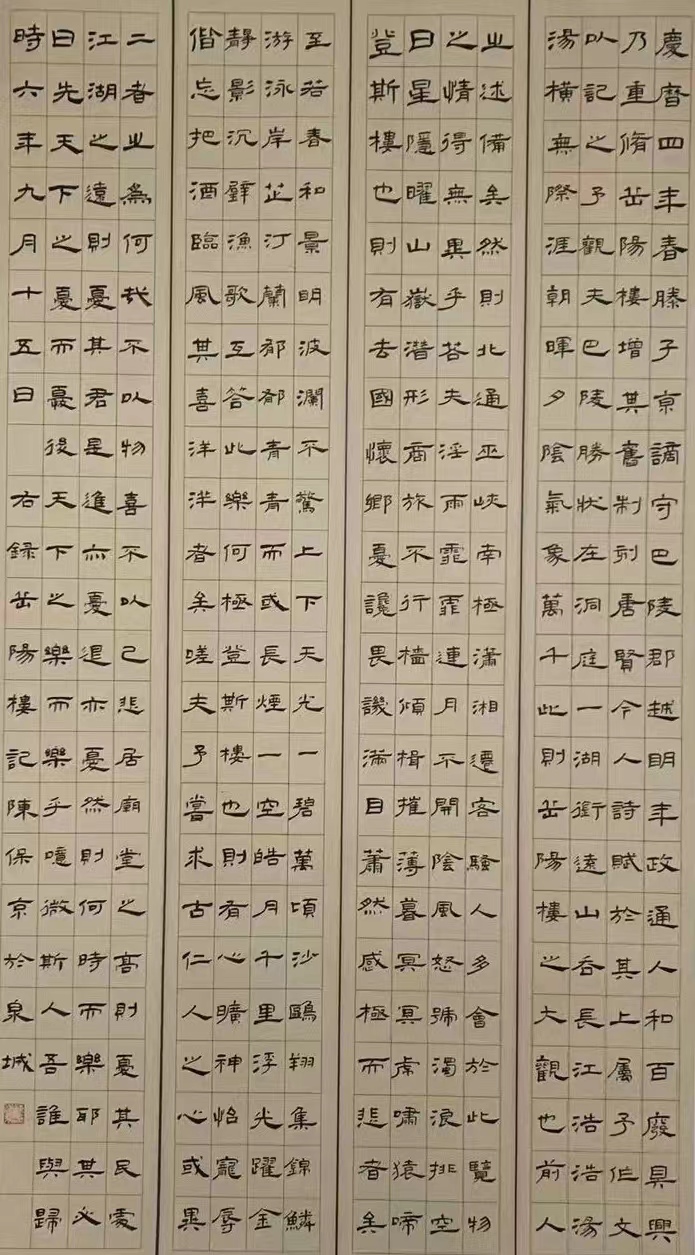 慶曆四年春滕子京謫守巴陵郡越明年政通人和百廢具興
乃重脩岳陽樓增其舊制刻唐賢今人詩賦於其上属予作文
以記之予觀夫巴陵勝狀在洞庭一湖銜遠山吞長江浩浩湯
湯橫無際涯朝暉夕陰氣象萬千此則岳陽樓之大觀也前人
之述備矣然則北通巫峽南極瀟湘遷客騷人多會於此覽物
之情得無異乎若夫淫雨霏霏連月不開陰風怒號濁浪排空
日星隱曜山嶽潛形商旅不行檣傾楫摧薄暮冥冥虎嘯猿啼
登斯樓也則有去國懷鄉憂讒畏譏滿目蕭然感極而悲者矣
至若春和景明波瀾不驚上下天光一碧萬頃沙鷗翔集錦鱗
游泳岸芷汀蘭郁郁青青而或長煙一空皓月千里浮光躍金
靜影沉璧漁歌互答此樂何極登斯樓也則有心曠神怡寵辱
偕忘把酒臨風其喜洋洋者矣嗟夫予嘗求古仁人之心或異
二者之為何哉不以物喜不以己悲居廟堂之高則憂其民處
江湖之遠則憂其君是進亦憂退亦憂然則何時而樂耶其必
曰先天下之憂而憂後天下之樂而樂乎噫微斯人吾誰與歸
時六年九月十五日 右錄岳陽樓記陳保京於泉城